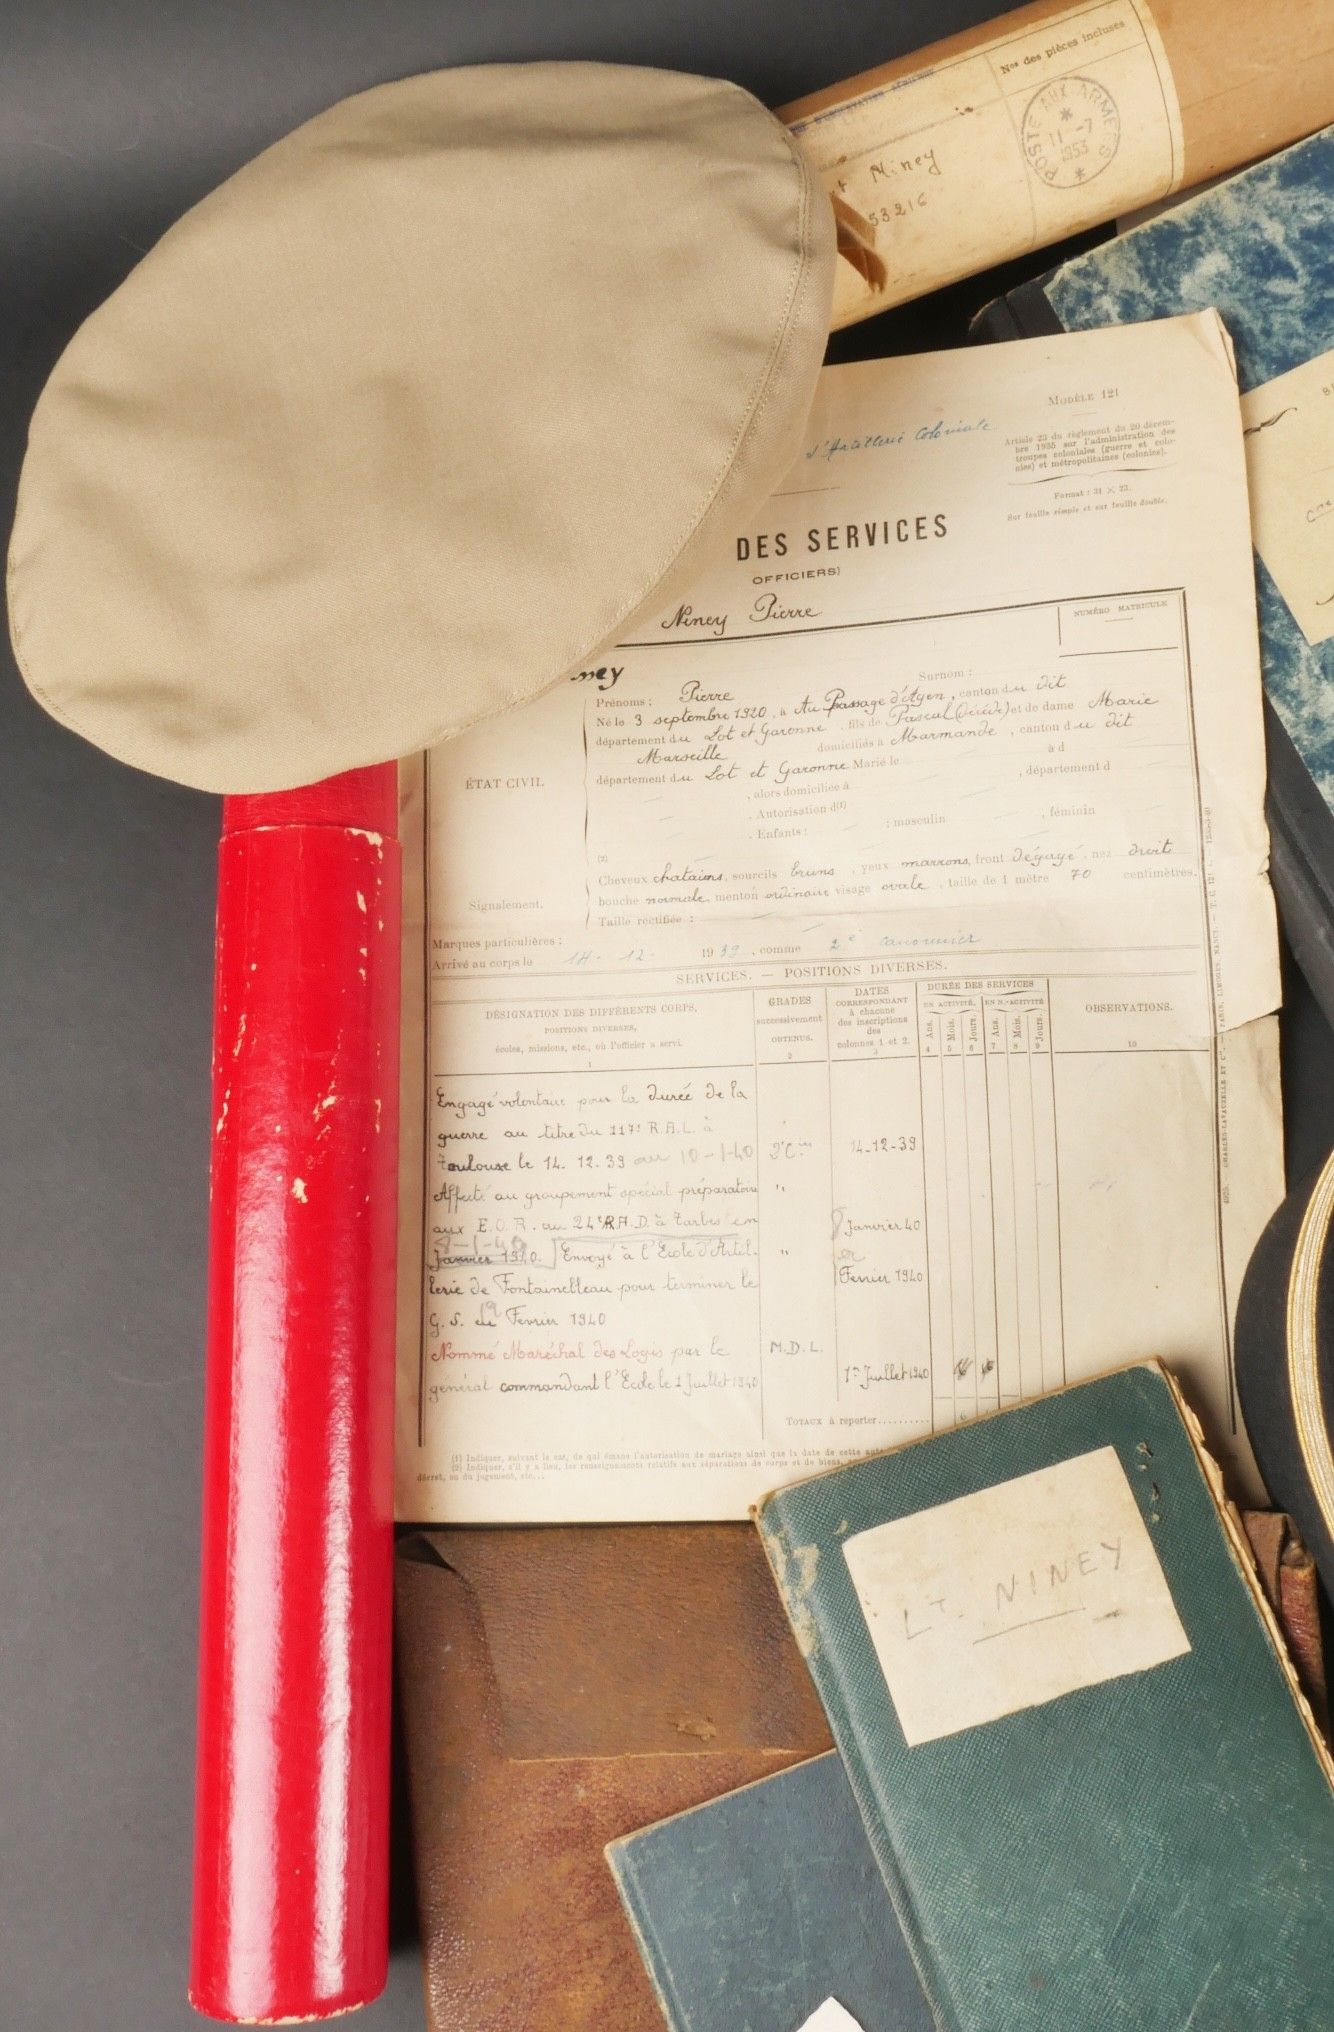 Nos des pièces incluses
POSTE AUX ARMEES
11 -7
1953
Niney
53216
MODÈLE 121
d'Artillerie Coloniale
Article 23 du règlement du 20 décem-
bre 1935 sur l'administration des
troupes coloniales (guerre et colo-
nies) et métropolitaines (colonies).
Format : 31 × 23.
Sur feuille simple et sur feuille double.
DES SERVICES
OFFICIERS)
Niney Pierre
NUMÉRO MATRICULE
ney
Surnom :
Prénoms : Pierre
Né le 3 septembre 1920, à Au Passage d'Agen, canton du dit
département du Lot et Garonne, fils de Pascal (décédé) et de dame Marie
Marseille domiciliés à Marmande, canton du dit
département du Lot et Garonne Marié le à d
, alors domiciliée à , département d
. Autorisation d(1)
. Enfants : ; masculin , féminin
ÉTAT CIVIL
(2)
Cheveux chatains, sourcils bruns, yeux marrons, front dégagé, nez droit
bouche normale, menton ordinaire visage ovale, taille de 1 mètre 70 centimètres.
Signalement.
Taille rectifiée :
Marques particulières :
Arrivé au corps le 14-12-1939, comme 2e canonnier
SERVICES. — POSITIONS DIVERSES.
DÉSIGNATION DES DIFFÉRENTS CORPS,
POSITIONS DIVERSES,
écoles, missions, etc., où l'officier a servi.
1
GRADES
successivement
OBTENUS.
2
DATES
CORRESPONDANT
à chacune
des inscriptions
des
colonnes 1 et 2.
3
DURÉE DES SERVICES
EN ACTIVITÉ. EN N.-ACTIVITÉ
Ans. Mois. Jours. Ans. Mois. Jours.
4 5 6 7 8 9
OBSERVATIONS.
10
Engagé volontaire pour la durée de la
guerre au titre du 117e R.A.L. à
Toulouse le 14. 12. 39 au 10-1-40 2e Cier 14-12-39
Affecté au groupement spécial préparatoire "
aux E.O.R. au 24e R.A.D. à Tarbes en 8 Janvier 40
8-1-40
Janvier 1940. Envoyé à l'Ecole d'Artil- "
lerie de Fontainebleau pour terminer le Fevrier 1940
G.S. Fevrier 1940
Nommé Maréchal des Logis par le M.D.L.
général commandant l'Ecole le 1 Juillet 1940 1er Juillet 1940
TOTAUX à reporter..........
(1) Indiquer, suivant le cas, de qui émane l'autorisation de mariage ainsi que la date de cette
(2) Indiquer, s'il y a lieu, les renseignements relatifs aux séparations de corps et de biens,
décret, ou du jugement, etc...
CHARLES-LAVAUZELLE ET Cie. — PARIS, LIMOGES, NANCY.
LT. NINEY